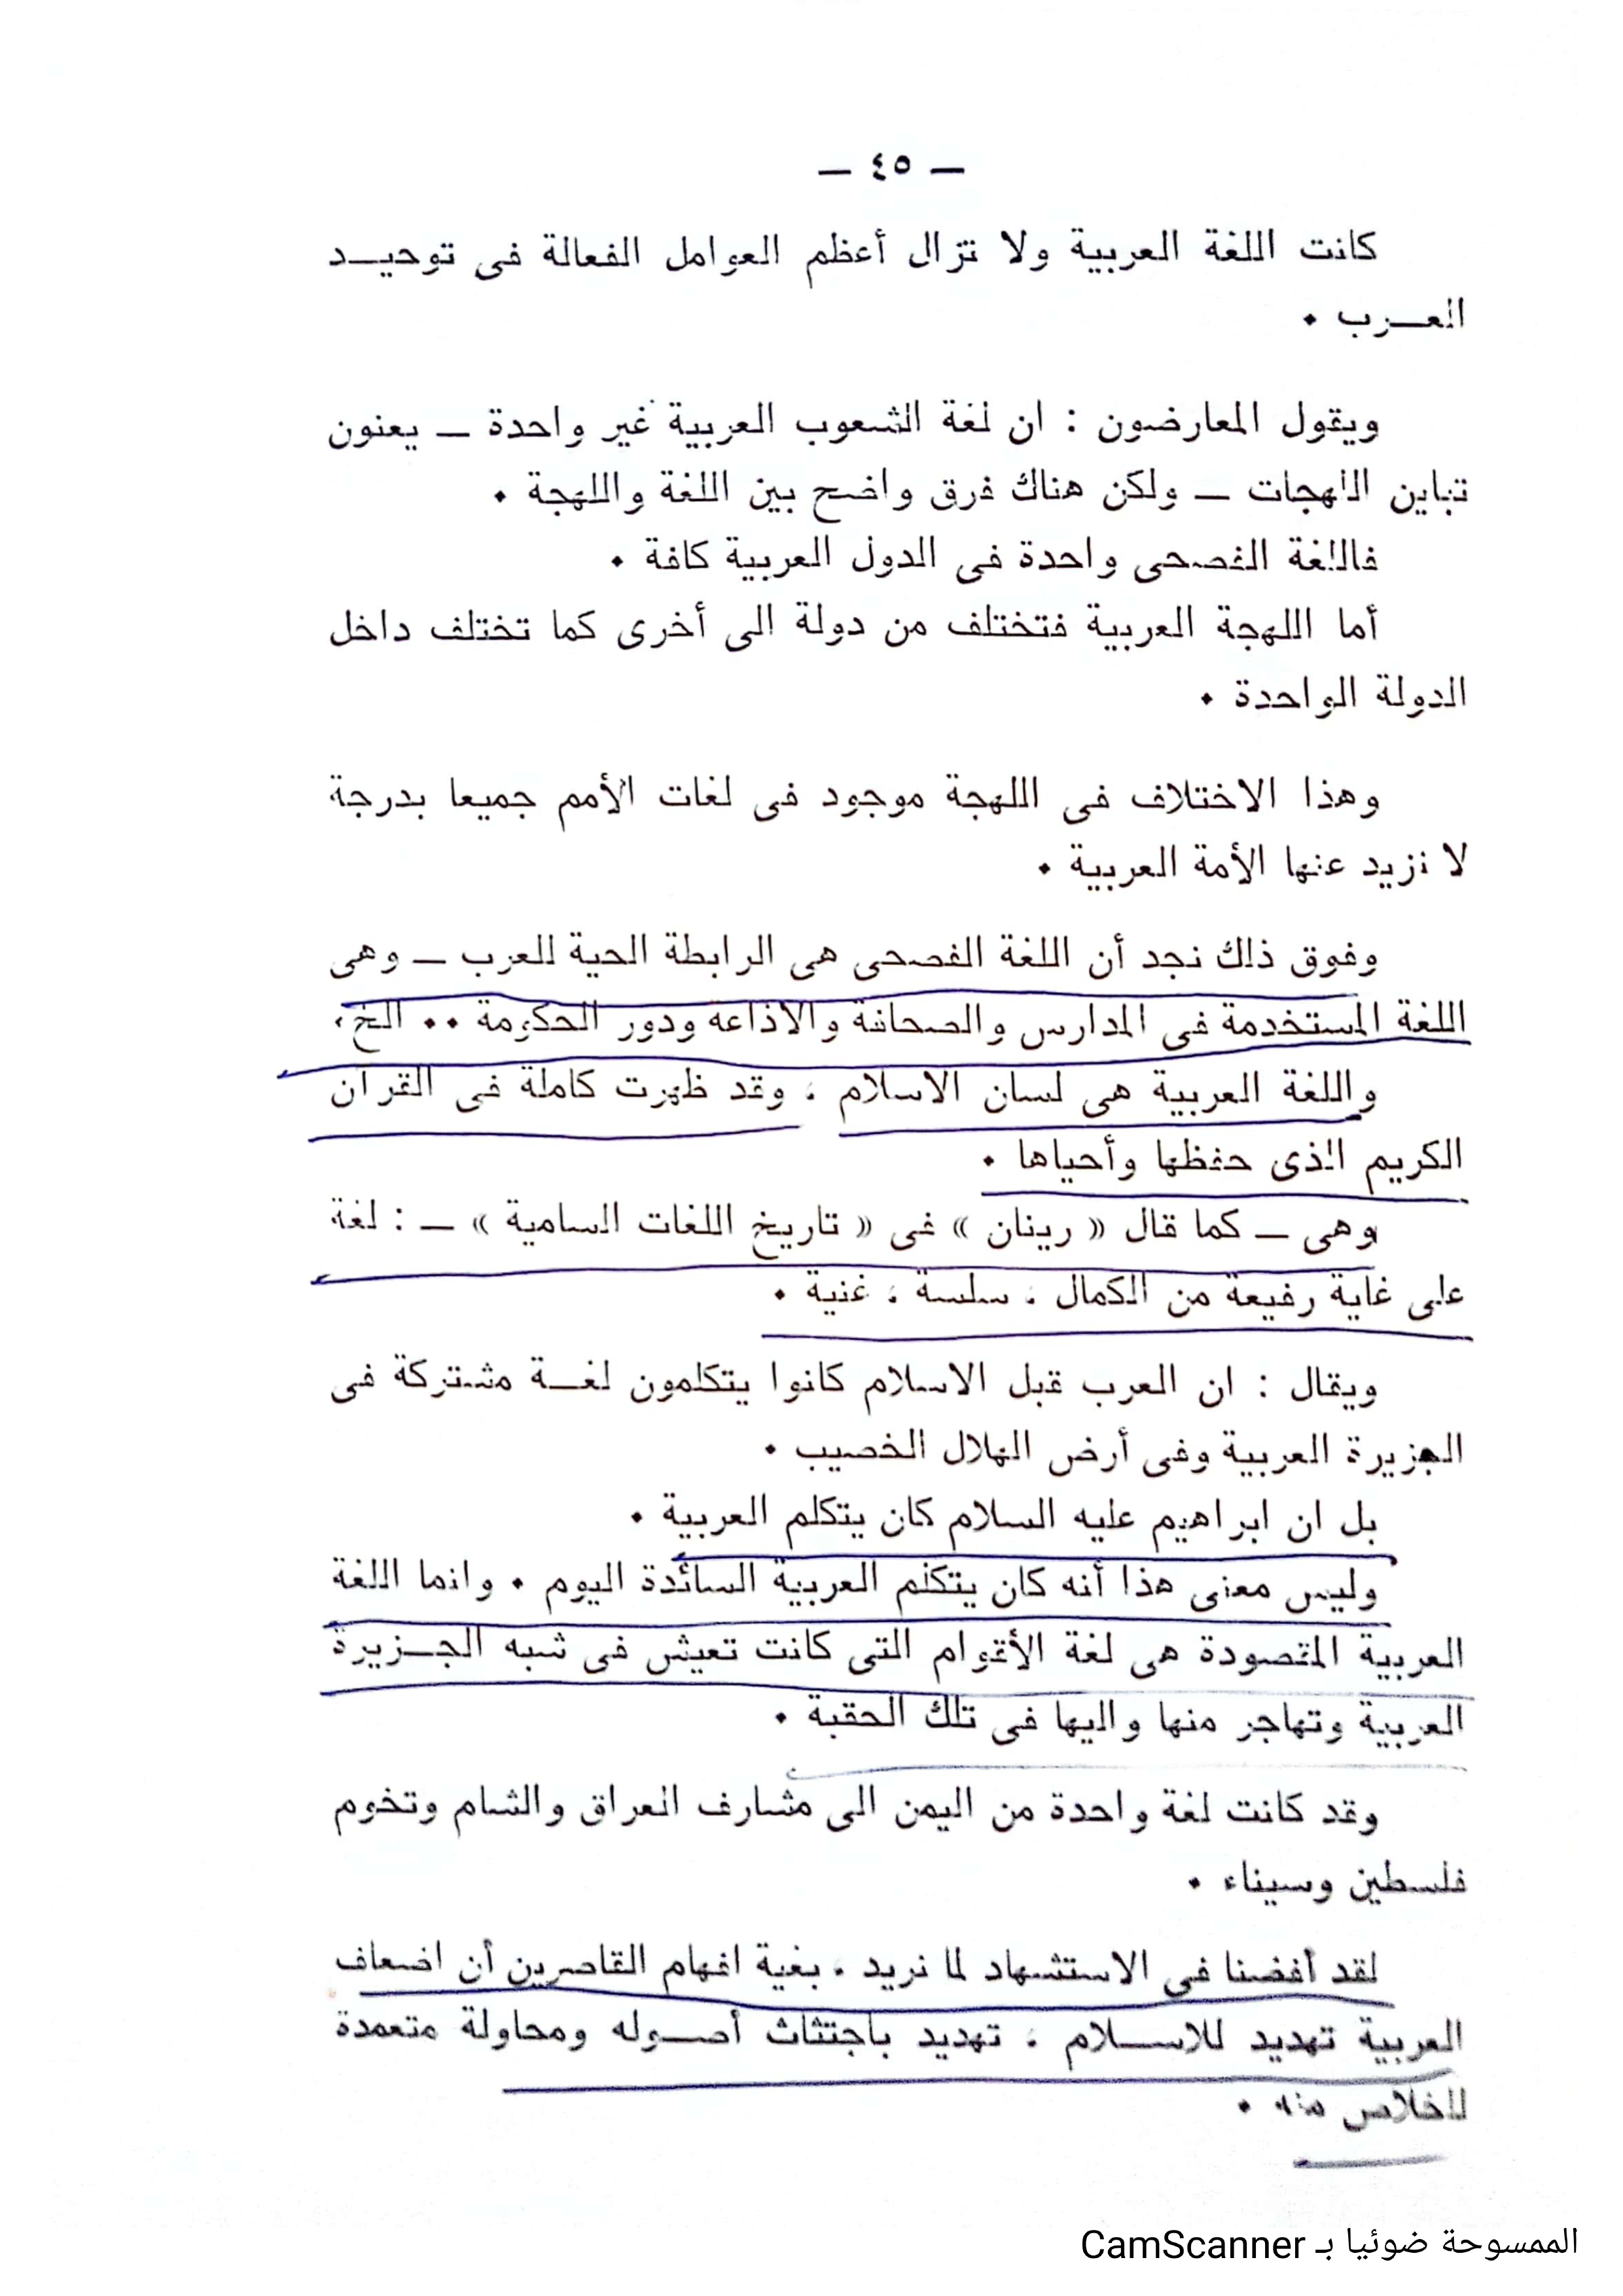 — ٤٥ —
كانت اللغة العربية ولا تزال أعظم العوامل الفعالة فى توحيــد
العــرب ٠
ويقول المعارضون : ان لغة الشعوب العربية غير واحدة — يعنون
تباين اللهجات — ولكن هناك فرق واضح بين اللغة واللهجة ٠
فاللغة الفصحى واحدة فى الدول العربية كافة ٠
أما اللهجة العربية فتختلف من دولة الى أخرى كما تختلف داخل
الدولة الواحدة ٠
وهذا الاختلاف فى اللهجة موجود فى لغات الأمم جميعا بدرجة
لا تزيد عنها الأمة العربية ٠
وفوق ذلك نجد أن اللغة الفصحى هى الرابطة الحية للعرب — وهى
اللغة المستخدمة فى المدارس والصحافة والاذاعة ودور الحكومة ٠٠ الخ ،
واللغة العربية هى لسان الاسلام ، وقد ظهرت كاملة فى القرآن
الكريم الذى حفظها وأحياها ٠
وهى — كما قال « رينان » فى « تاريخ اللغات السامية » — : لغة
على غاية رفيعة من الكمال ، سلسة ، غنية ٠
ويقال : ان العرب قبل الاسلام كانوا يتكلمون لغــة مشتركة فى
الجزيرة العربية وفى أرض الهلال الخصيب ٠
بل ان ابراهيم عليه السلام كان يتكلم العربية ٠
وليس معنى هذا أنه كان يتكلم العربية السائدة اليوم ٠ وانما اللغة
العربية المقصودة هى لغة الأقوام التى كانت تعيش فى شبه الجــزيرة
العربية وتهاجر منها واليها فى تلك الحقبة ٠
وقد كانت لغة واحدة من اليمن الى مشارف العراق والشام وتخوم
فلسطين وسيناء ٠
لقد أفضنا فى الاستشهاد لما نريد ، بغية افهام القاصرين أن اضعاف
العربية تهديد للاســلام ، تهديد باجتثاث أصــوله ومحاولة متعمدة
للخلاص منه ٠
الممسوحة ضوئيا بـ CamScanner